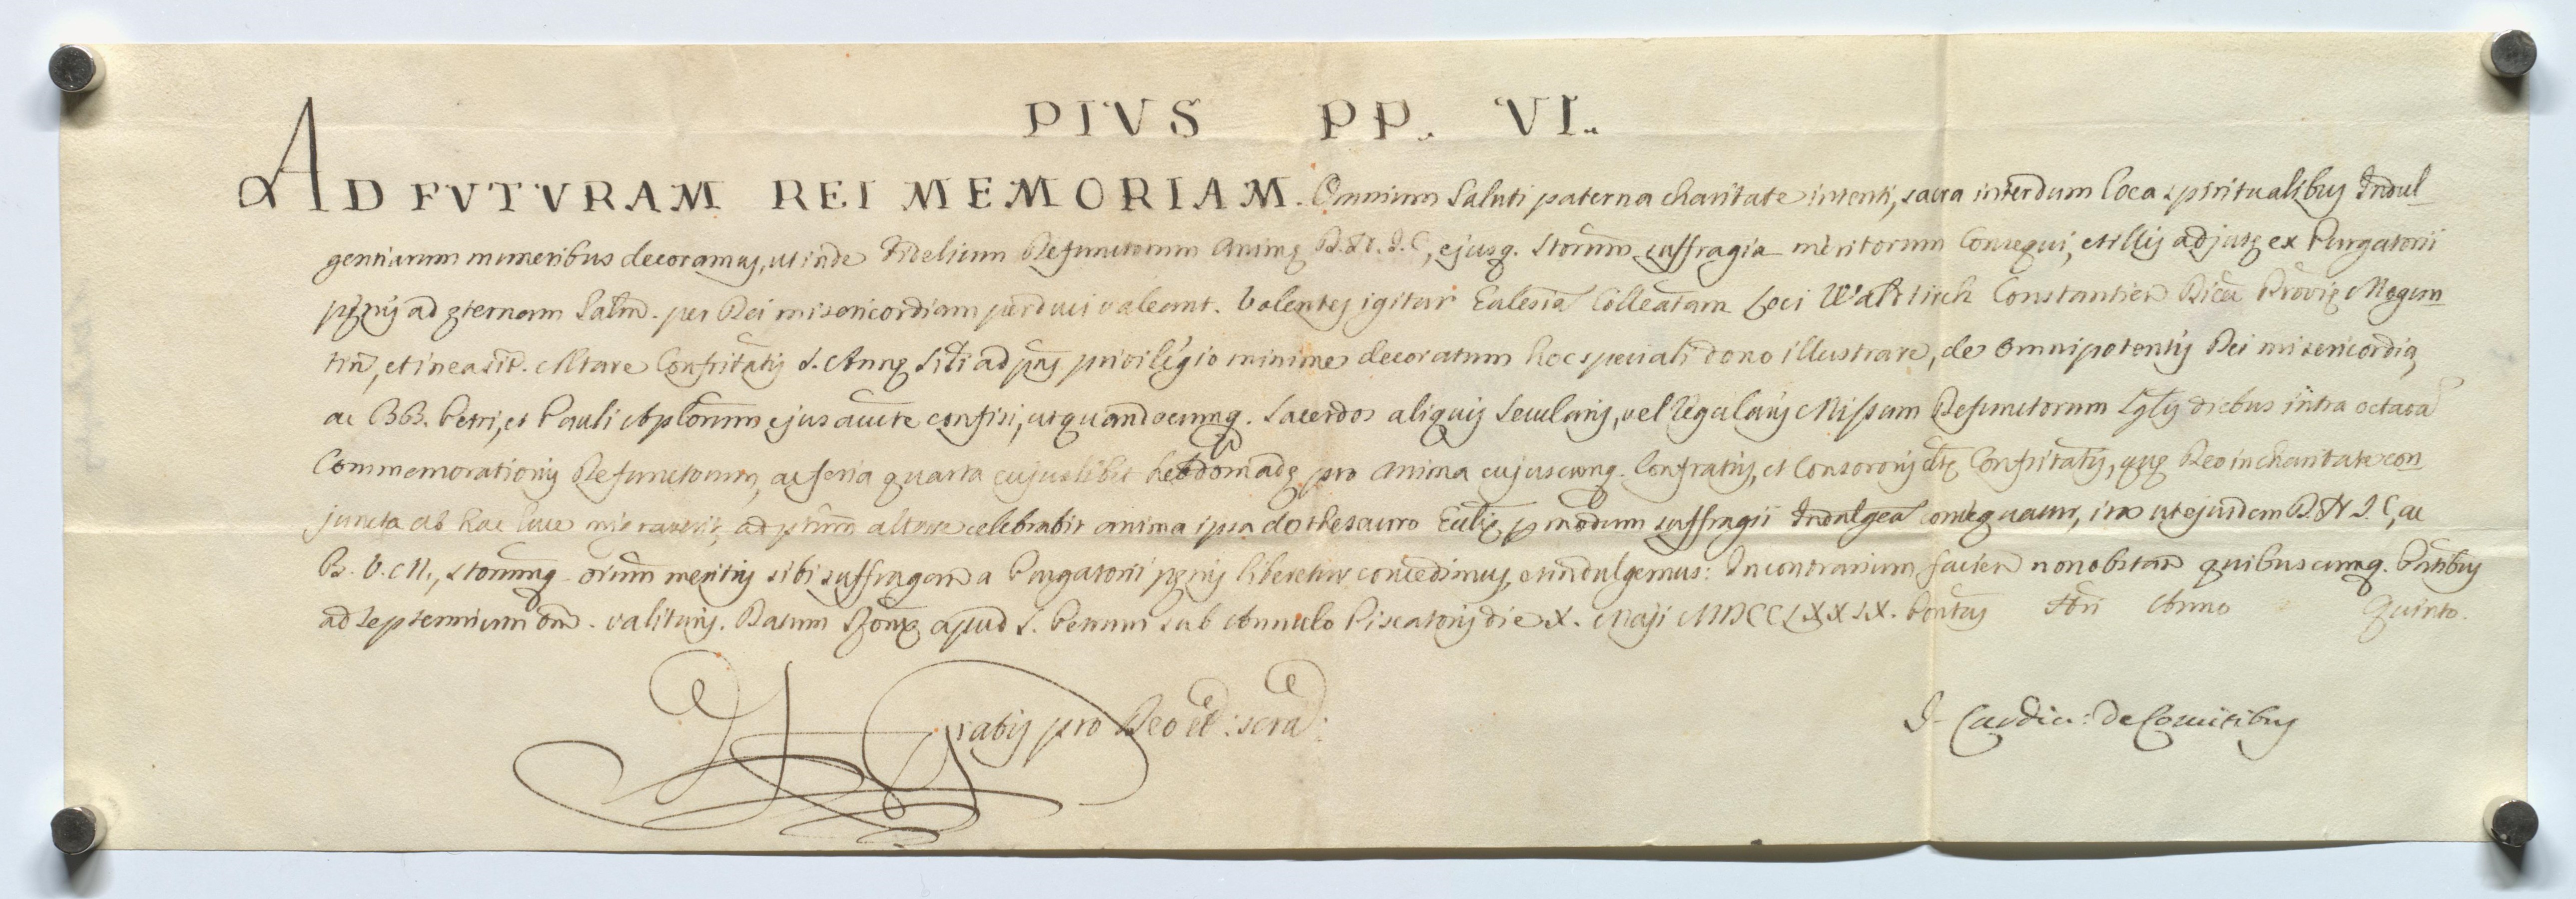 PIVS PP. VI.
AD FVTVRAM REI MEMORIAM. Omnium Saluti paterna charitate intenti, sacra interdum loca spiritualibus Indul
gentiarum muneribus decoramus, ut inde Fidelium Defunctorum Animę D. N. J. C., ejusq. Storum suffragia meritorum Consequi, et illis adjutę ex Purgatorii
pęnis ad ęternam Salm. per Dei misericordiam perduci valeant. Volentes igitur Ecclesia Colleatam Loci Waltkirch Constantien Diću Provię Mogun
tin, et in ea sit. Altare Confritatis S. Annę Siti ad pns privilegio minime decoratum hoc speciali dono illustrare, de omnipotentis Dei misericordia,
ac BB. Petri, et Pauli Aplorum ejus aucte confisi, ut quandocumq. Sacerdos aliquis Secularis, vel Regularis Missam Defunctorum diebus intra octava
Commemorationis Defunctorum, ac feria quarta cujuslibet hebdomadę pro Anima cujuscumq. Confratris, et Consororis dtę Confritatis, quę Deo in charitate con
juncta ab hac luce migraverit, ad altare celebrabit anima ipsa de thesauro Ecclię p modum suffragii Indulgea consequatur, ita ut ejusdem D. N. J. C., ac
B. V. M., Storumq. oium meritis sibi suffragan a Purgatorii pęnis liberetur concedimus, et indulgemus: In contrarium facien non obstan quibuscumq. Pntibus
ad Septennium tm. valituris. Datum Romę apud S. Petrum sub Annulo Piscatoris die X. Maji MDCCLXXIX. Pontus Nri Anno Quinto.
Gratis pro Deo et scra:
J. Cardin: De Comitibus